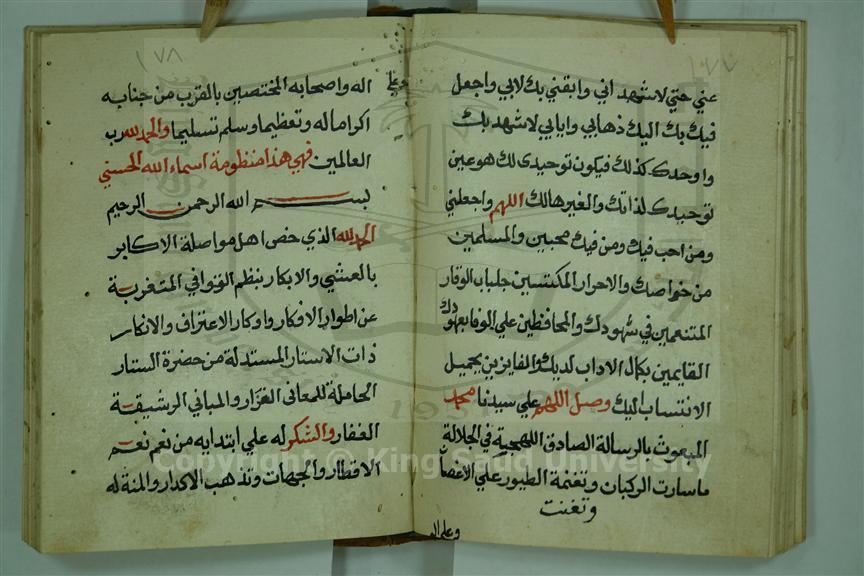 ١٧٧
عني حتي لا شهد اني وابقني بك لابي واجعل
فيك بك اليك ذهابي وايابي لا شهد بك
واوحدك كذلك فيكون توحيدى لك هو عين
توحيدك لذاتك والغيرها لك اللهم واجعلني
ومن احب فيك ومن فيك محبين والمسلمين
من خواصك والاحرار المكتسين جلباب الوقار
المتنعمين في شهودك والمحافظين علي الوفا بعهودك
القايمين بكمال الاداب لديك والفايزين بجميل
الانتساب اليك وصل اللهم علي سيدنا محمد
المبعوث بالرسالة الصادق اللهجية في الجلالة
ما سارت الركبان وتغنمة الطيور علي الاغصان
وتغنت
وعلي اله
١٧٨
وعلي
اله واصحابه المختصين بالقرب من جنابه
اكراما له وتعظيما وسلم تسليما والحمد لله رب
العالمين فهي هذا منظومة اسماء الله الحسني
بسم الله الرحمن الرحيم
الحمد لله الذي خص اهل مواصلة الاكابر
بالعشي والابكار بنظم القوافي المتغربة
عن اطوار الافكار واوكار الاعتراف والانكار
ذات الاستار المستدلة من حضرة الستار
الحاملة للمعاني الغزار والمباني الرشيقة
الغفار والشكر له علي ابتدايه من نعم نعم
الاقطار والجهات وتذهب الاكدار والمنة له
Copyright © King Saud University
1957